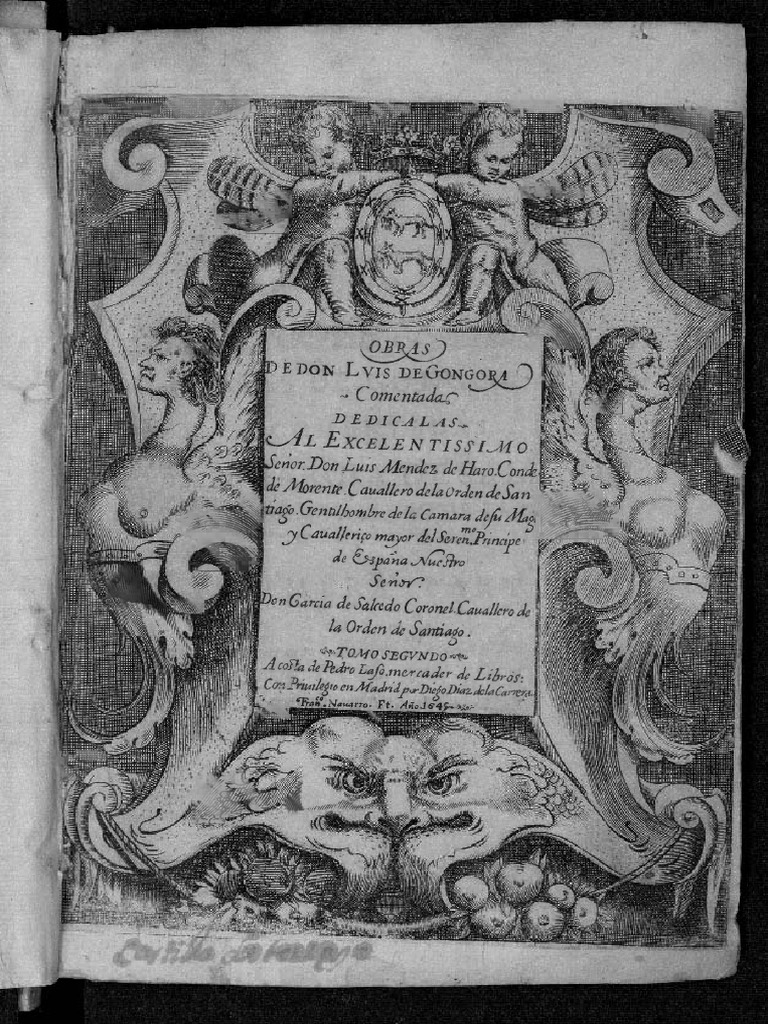 OBRAS
DE DON LVIS DE GONGORA
Comentadas
DEDICALAS
AL EXCELENTISSIMO
Señor. Don Luis Mendez de Haro. Conde
de Morente. Cauallero de la Orden de San
tiago. Gentilhombre de la Camara de su Mag.
y Caualleriço mayor del Seren.mo Principe
de España Nuestro
Señor.
Don Garcia de Salcedo Coronel. Cauallero de
la Orden de Santiago.
TOMO SEGVNDO
A costa de Pedro Laso, mercader de Libros:
Con Priuilegio en Madrid por Diego Diaz de la Carrera
Fran.co Navarro. Ft. Año 1645